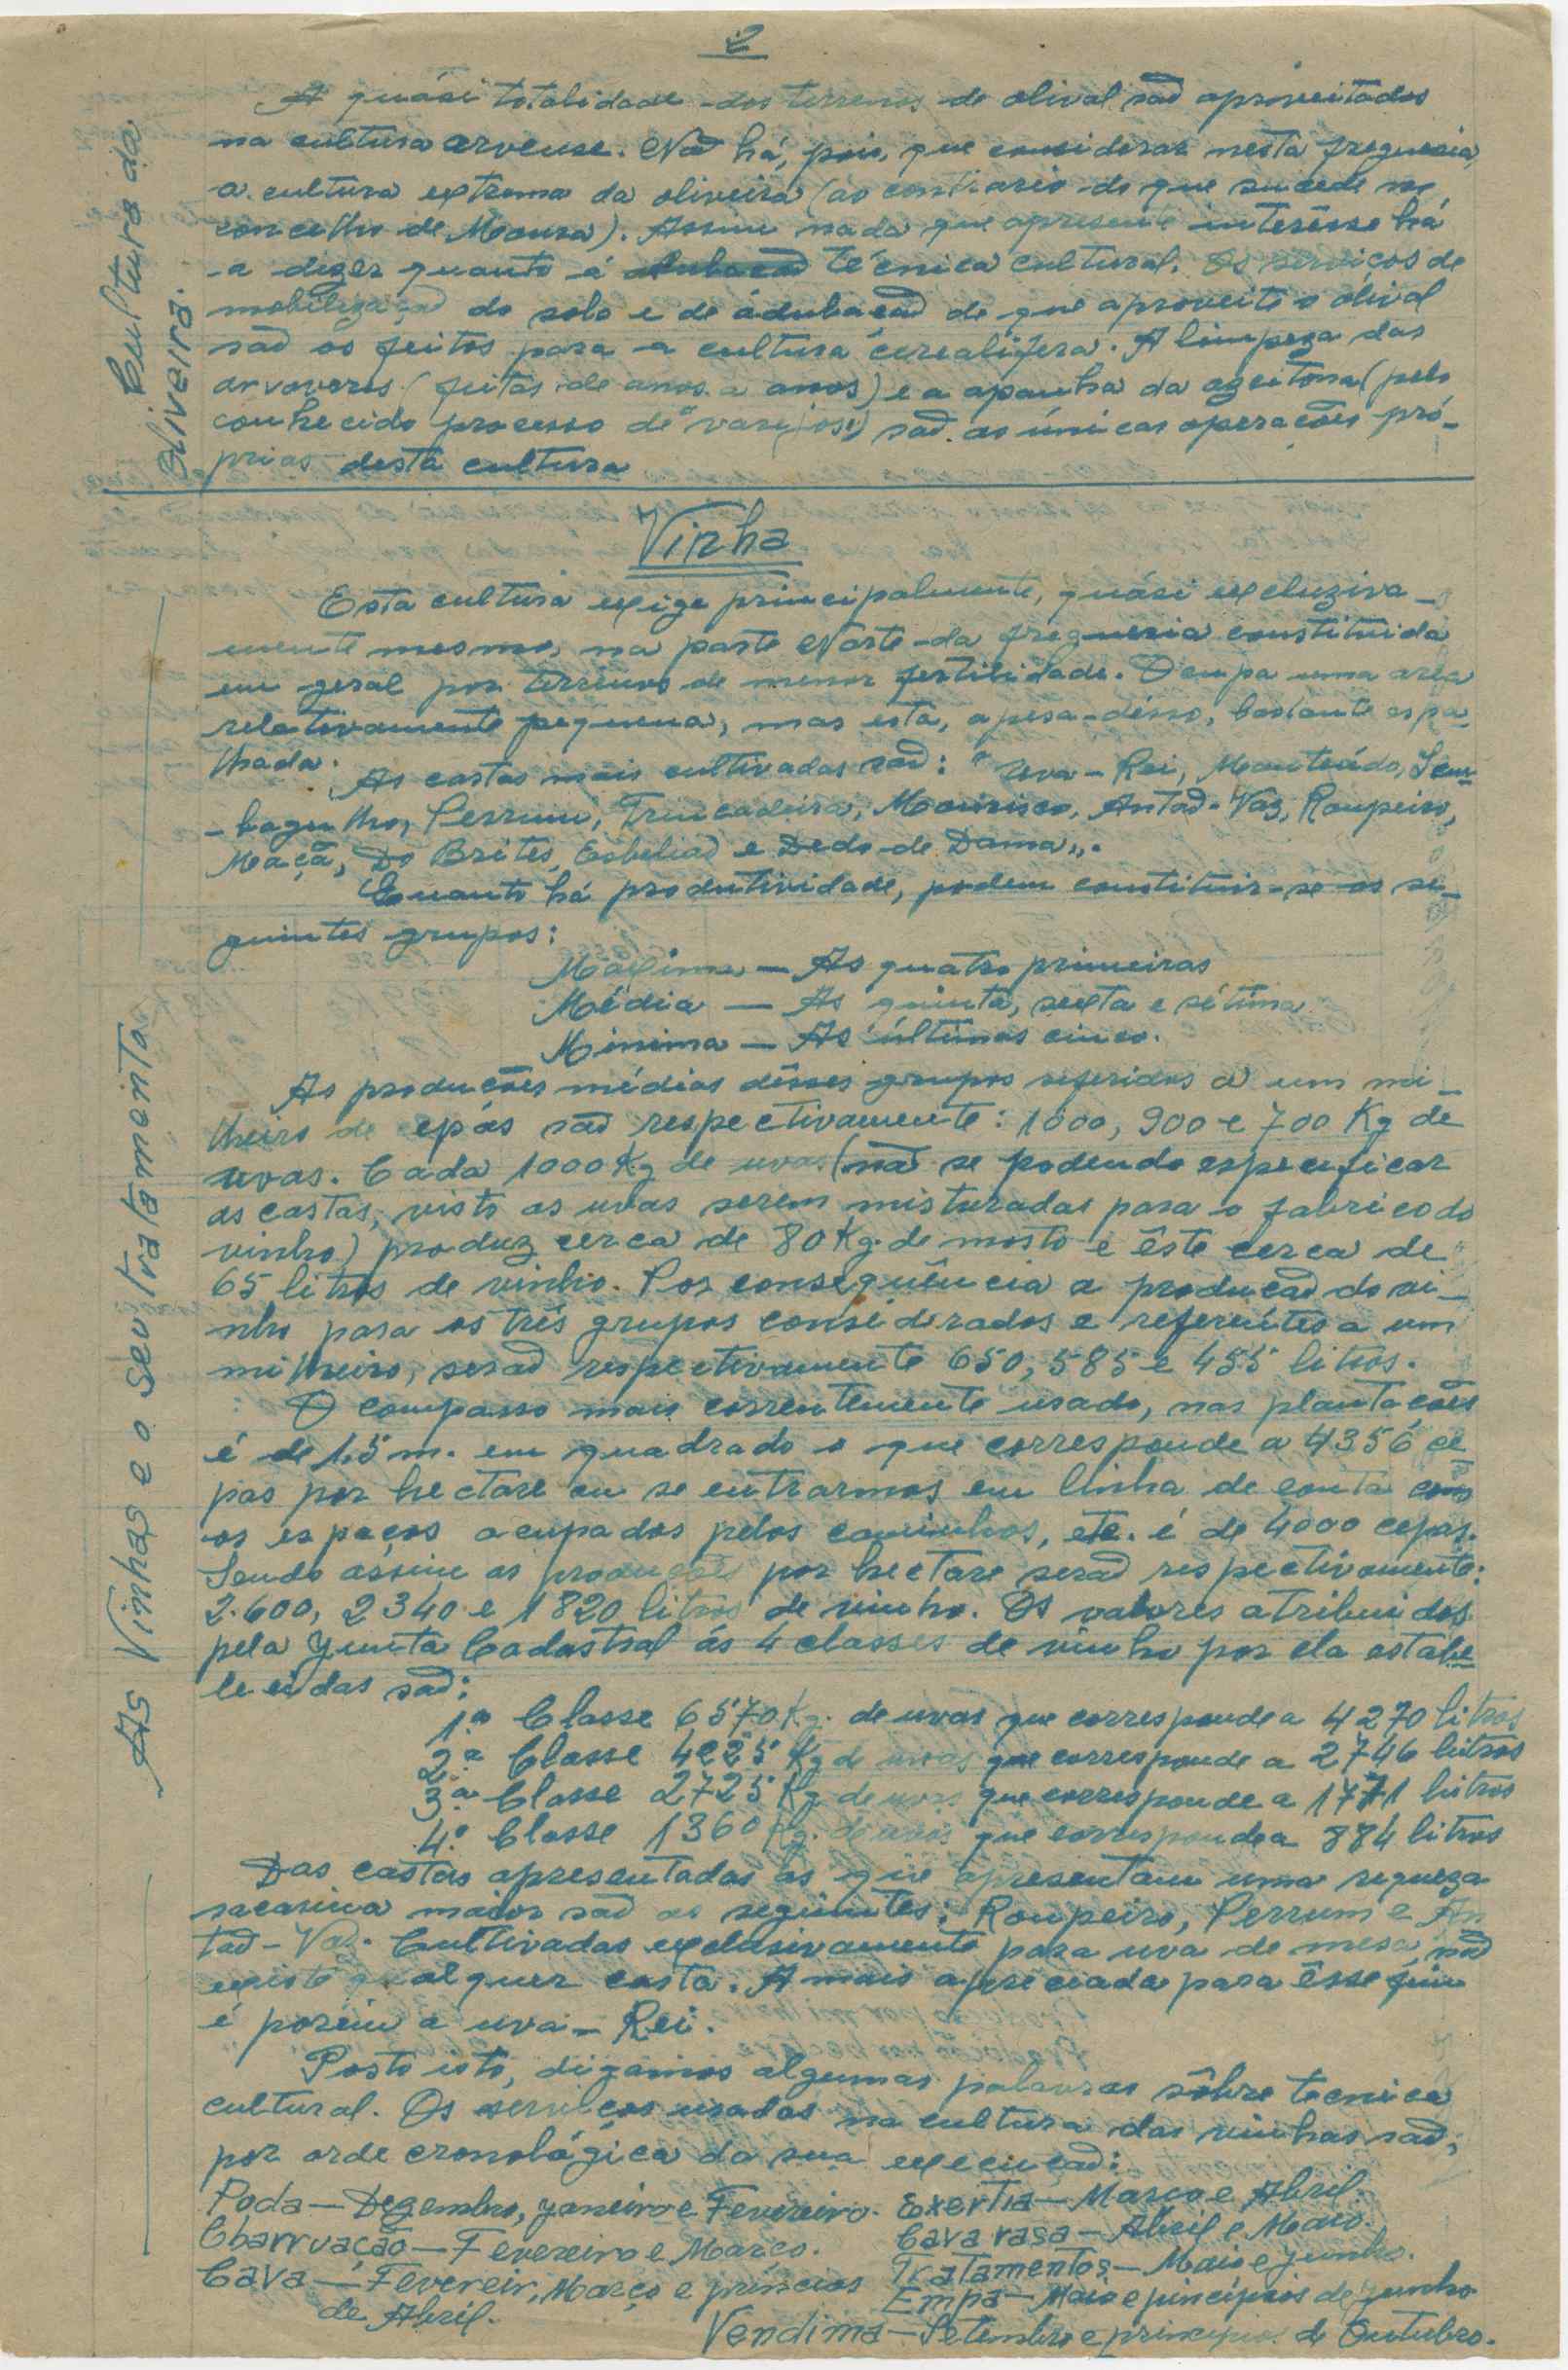 2
Cultura da
Oliveira.
A quási totalidade dos terrenos de olival são aproveitados
na cultura arvense. Não há, pois, que considerar nesta freguesia
a cultura extrema da oliveira (ao contrario do que sucede no
concelho de Moura). Assim nada que apresente interêsse há
a dizer quanto á adubação técnica cultural. Os serviços de
mobilização do solo e de adubação de que aproveite o olival
são os feitos para a cultura cerealifera. A limpeza das
arvoveres (feitas de anos a anos) e a apanha da azeitona (pelo
conhecido processo de "varejos") são as únicas operações pró-
prias desta cultura
Vinha
As Vinhas e o Seu Tratamento
Esta cultura exige principalmente, quási excluziva-
mente mesmo, na parte Norte da freguesia constituida
em geral por terrenos de menor fertilidade. Ocupa uma area
relativamente pequena, mas está, apesa-disso, bastante espa-
lhada.
As castas mais cultivadas são: "Uva-Rei, Manteúdo, Sem-
-bagulho, Perrum, Trincadeira, Mourisco, Antão-Vaz, Roupeiro,
Maçã, Do Brites, e Dedo-de Dama".
Quanto há produtividade, podem constituir-se os se-
guintes grupos:
Maxima — As quatro primeiras
Média — As quinta, sexta e sétima
Minima — As últimas cinco.
As produções médias dêsses grupos referidos a um mi-
lheiro de cepas são respectivamente: 1000, 900 e 700 Kg de
uvas. Cada 1000 Kg de uvas (não se podendo especificar
as castas, visto as uvas serem misturadas para o fabrico do
vinho) produz cerca de 80 Kg. de mosto e êste cerca de
65 litros de vinho. Por consequência a produção do vi-
nho para os três grupos considerados e referentes a um
milheiro, serão respectivamente 650, 585 e 455 litros.
O compasso mais correntemente usado, nas plantações
é de 1,5 m. em quadrado o que corresponde a 4356 ce-
pas por hectare ou se entrarmos em linha de conta com
os espaços ocupados pelos caminhos, etc. é de 4000 cepas.
Sendo assim as produções por hectare serão respectivamente:
2.600, 2340 e 1820 litros de vinho. Os valores atribuidos
pela Junta Cadastral ás 4 classes de vinho por ela estabe-
lecidas são:
1.ª Classe 6570 Kg. de uvas que corresponde a 4270 litros
2.ª Classe 4225 Kg de uvas que corresponde a 2746 litros
3.ª Classe 2725 Kg de uvas que corresponde a 1771 litros
4.ª Classe 1360 Kg. de uvas que corresponde a 884 litros
Das castas apresentadas as que apresentam uma riqueza
sacarina maior são as seguintes: Roupeiro, Perrum e An-
tão-Vaz. Cultivadas exclusivamente para uva de mesa, não
existe qualquer casta. A mais apreciada para êsse fim
é porém a uva-Rei.
Posto isto, digamos algumas palavras sôbre tecnica
cultural. Os serviços usados na cultura das vinhas são,
por orde cronológica da sua execução:
Poda — Dezembro, Janeiro e Fevereiro.
Charruação — Fevereiro e Março.
Cava — Fevereir, Março e princios
de Abril.
Exertia — Março e Abril.
Cava rasa — Abril e Maio.
Tratamentos — Maio e Junho.
Empa — Maio e principios de Junho
Vendima — Setembro e principios de Outubro.